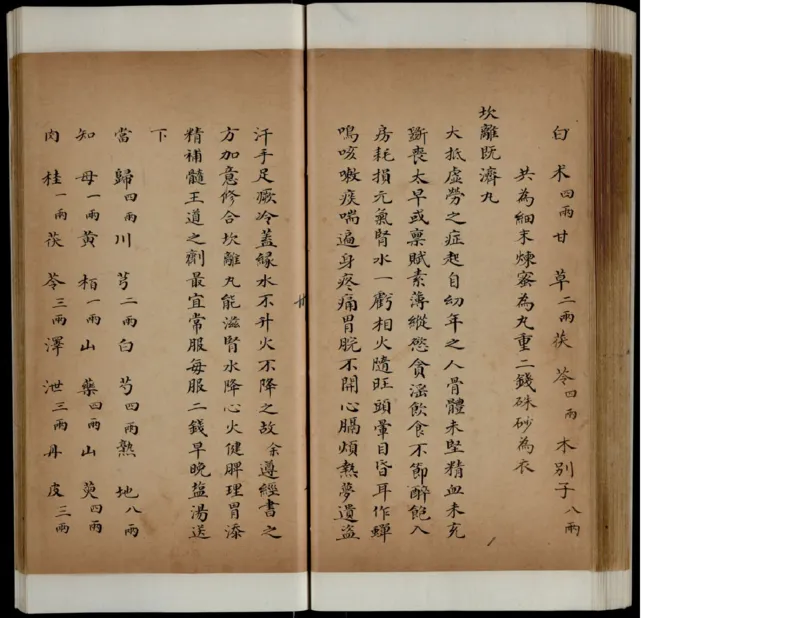 白术四兩甘草二兩茯苓四兩木別子八兩
共為細末煉蜜為丸重二錢硃砂為衣
坎離既濟丸
大抵虛勞之症起自幼年之人骨體未堅精血未充
斵喪太早或稟賦素薄縱慾貪淫飲食不節醉飽入
房耗損元氣腎水一虧相火隨旺頭暈目昏耳作蟬
鳴咳嗽痰喘遍身疼痛胃脘不開心膈煩熱夢遺盜
汗手足厥冷蓋緣水不升火不降之故余遵經書之
方加意修合坎離丸能滋腎水降心火健脾理胃添
精補髓王道之劑最宜常服每服二錢早晚盐湯送
下
當歸四兩川芎二兩白芍四兩熟地八兩
知母一兩黃栢一兩山藥四兩山萸四兩
肉桂一兩茯苓三兩澤泄三兩丹皮三兩